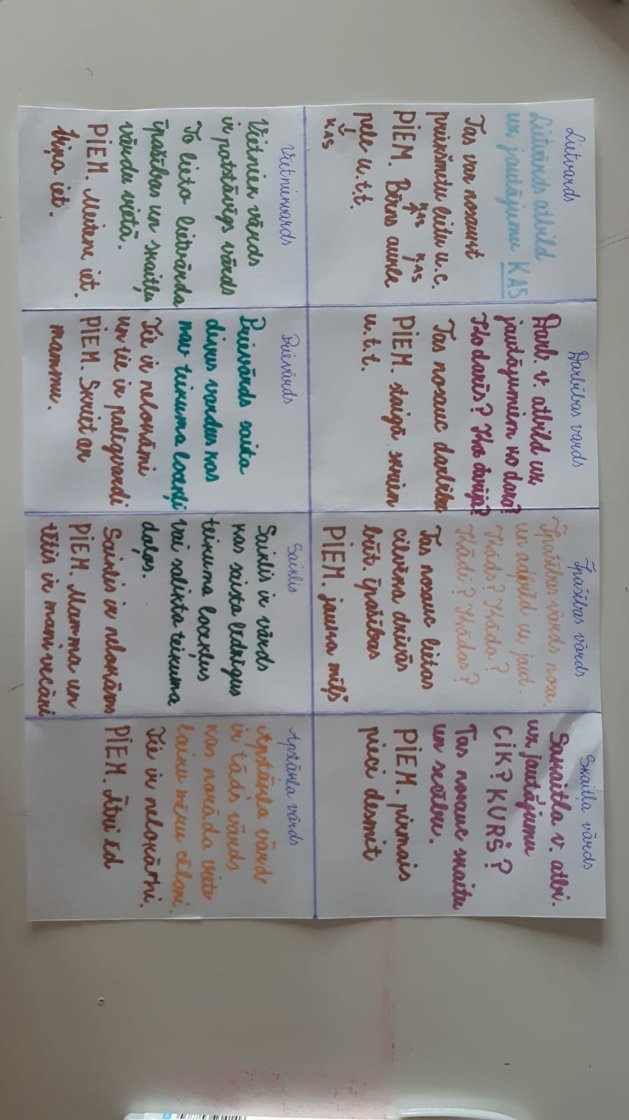 Lietvārds
Lietvārds atbild
uz jautājumu KAS
Tas var nosaukt
priekšmetu lietu u.c.
KAS KAS
PIEM. Bērns aukle
pele u.t.t.
KAS
Darbības vārds
Darb. v. atbild uz
jautājumiem ko dara?
Ko darīs? Ko darīja?
Tas nosauc darbību
PIEM. staigā skrien
u.t.t.
Īpašības vārds
Īpašības vārds nosa.
un adbild uz jaut.
Kāds? Kāda?
Kādi? Kādas?
Tas nosauc lietas
cilvēka dzīvās
būt. īpašības
PIEM. jauka mīļš
Skaitļa vārds
Skaitļa v. atbi.
uz jautājumu
CIK? KURŠ?
Tas nosauc skaitu
un secību.
PIEM. pirmais
pieci desmit
Vietniekvārds
Vietniek vārds
ir patstāvīgs vārds
To lieto lietvārda
īpašības un skaitļa
vārdu vietā.
PIEM. Meitene iet.
Viņa iet.
Prievārds
Prievārds saista
divus vārdus kas
nav teikuma locekļi
Tie ir nelokāmi
un tie ir palīgvārdi
PIEM. Skriet ar
mammu.
Saiklis
Saiklis ir vārds
kas saista līdzīgus
teikuma locekļus
vai salikta teikuma
daļas.
Saiklis ir nelokāms
PIEM. Mamma un
tētis ir mani vecāki
Apstākļa vārds
Apstākļa vārds
ir tāds vārds
kas norāda vietu
laiku mēru cēloni.
Tie ir nelokāmi.
PIEM. Ātri ēd